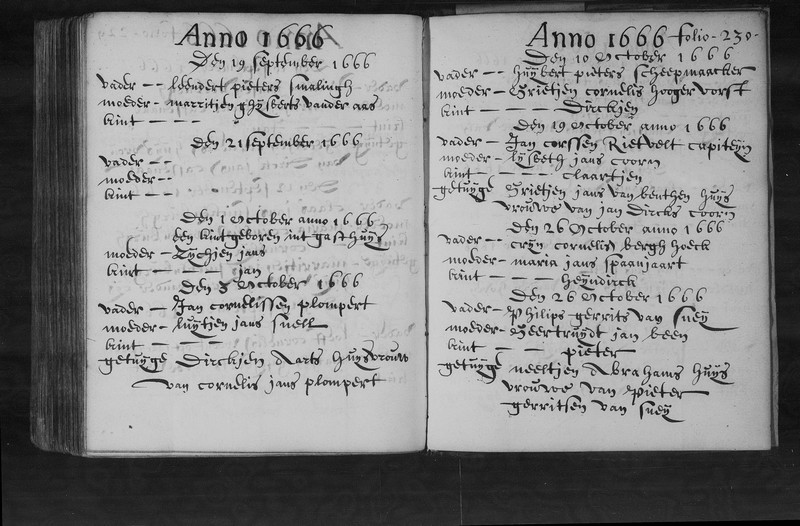 Anno 1666
Den 19 september 1666
vader - - leendert pieters smalingh
moeder - marritjen ghijsberts vander aas
kint - - - -
Den 21 september 1666
vader - -
moeder - -
kint - - -
Den 1 October anno 1666
een kint geboren int gasthuijs
moeder - Tychjen jans
kint - - - - jan
Den 3 October 1666
vader - Jan cornelissen plompert
moeder - luijtjen jans snell
kint - - - -
getuijge Dirckjen Aarts huijsvrouw
van cornelis jans plompert
Anno 1666 folio - 230 -
Den 10 October 1666
vader - - huijbert pieters scheepmaacker
moeder - Grietjen cornelis hooger vorst
kint - - - - Dirckjen
Den 19 October anno 1666
vader - Jan corssen Rietvelt capiteijn
moeder - lijsbeth jans coorn
kint - - - - claartjen
getuijge Grietjen jans van benthen huijs
vrouwe van jan Dircks coorn
Den 26 October anno 1666
vader - - crijn cornelis bergh hoeck
moeder - maria jans spaanjaart
kint - - - - heijndirck
Den 26 October 1666
vader - Philips gerrits van sueij
moeder - Geertruijdt jan been
kint - - - pieter
getuijge neeltjen Abrahams huijs
vrouwe van Pieter
gerritsen van sueij